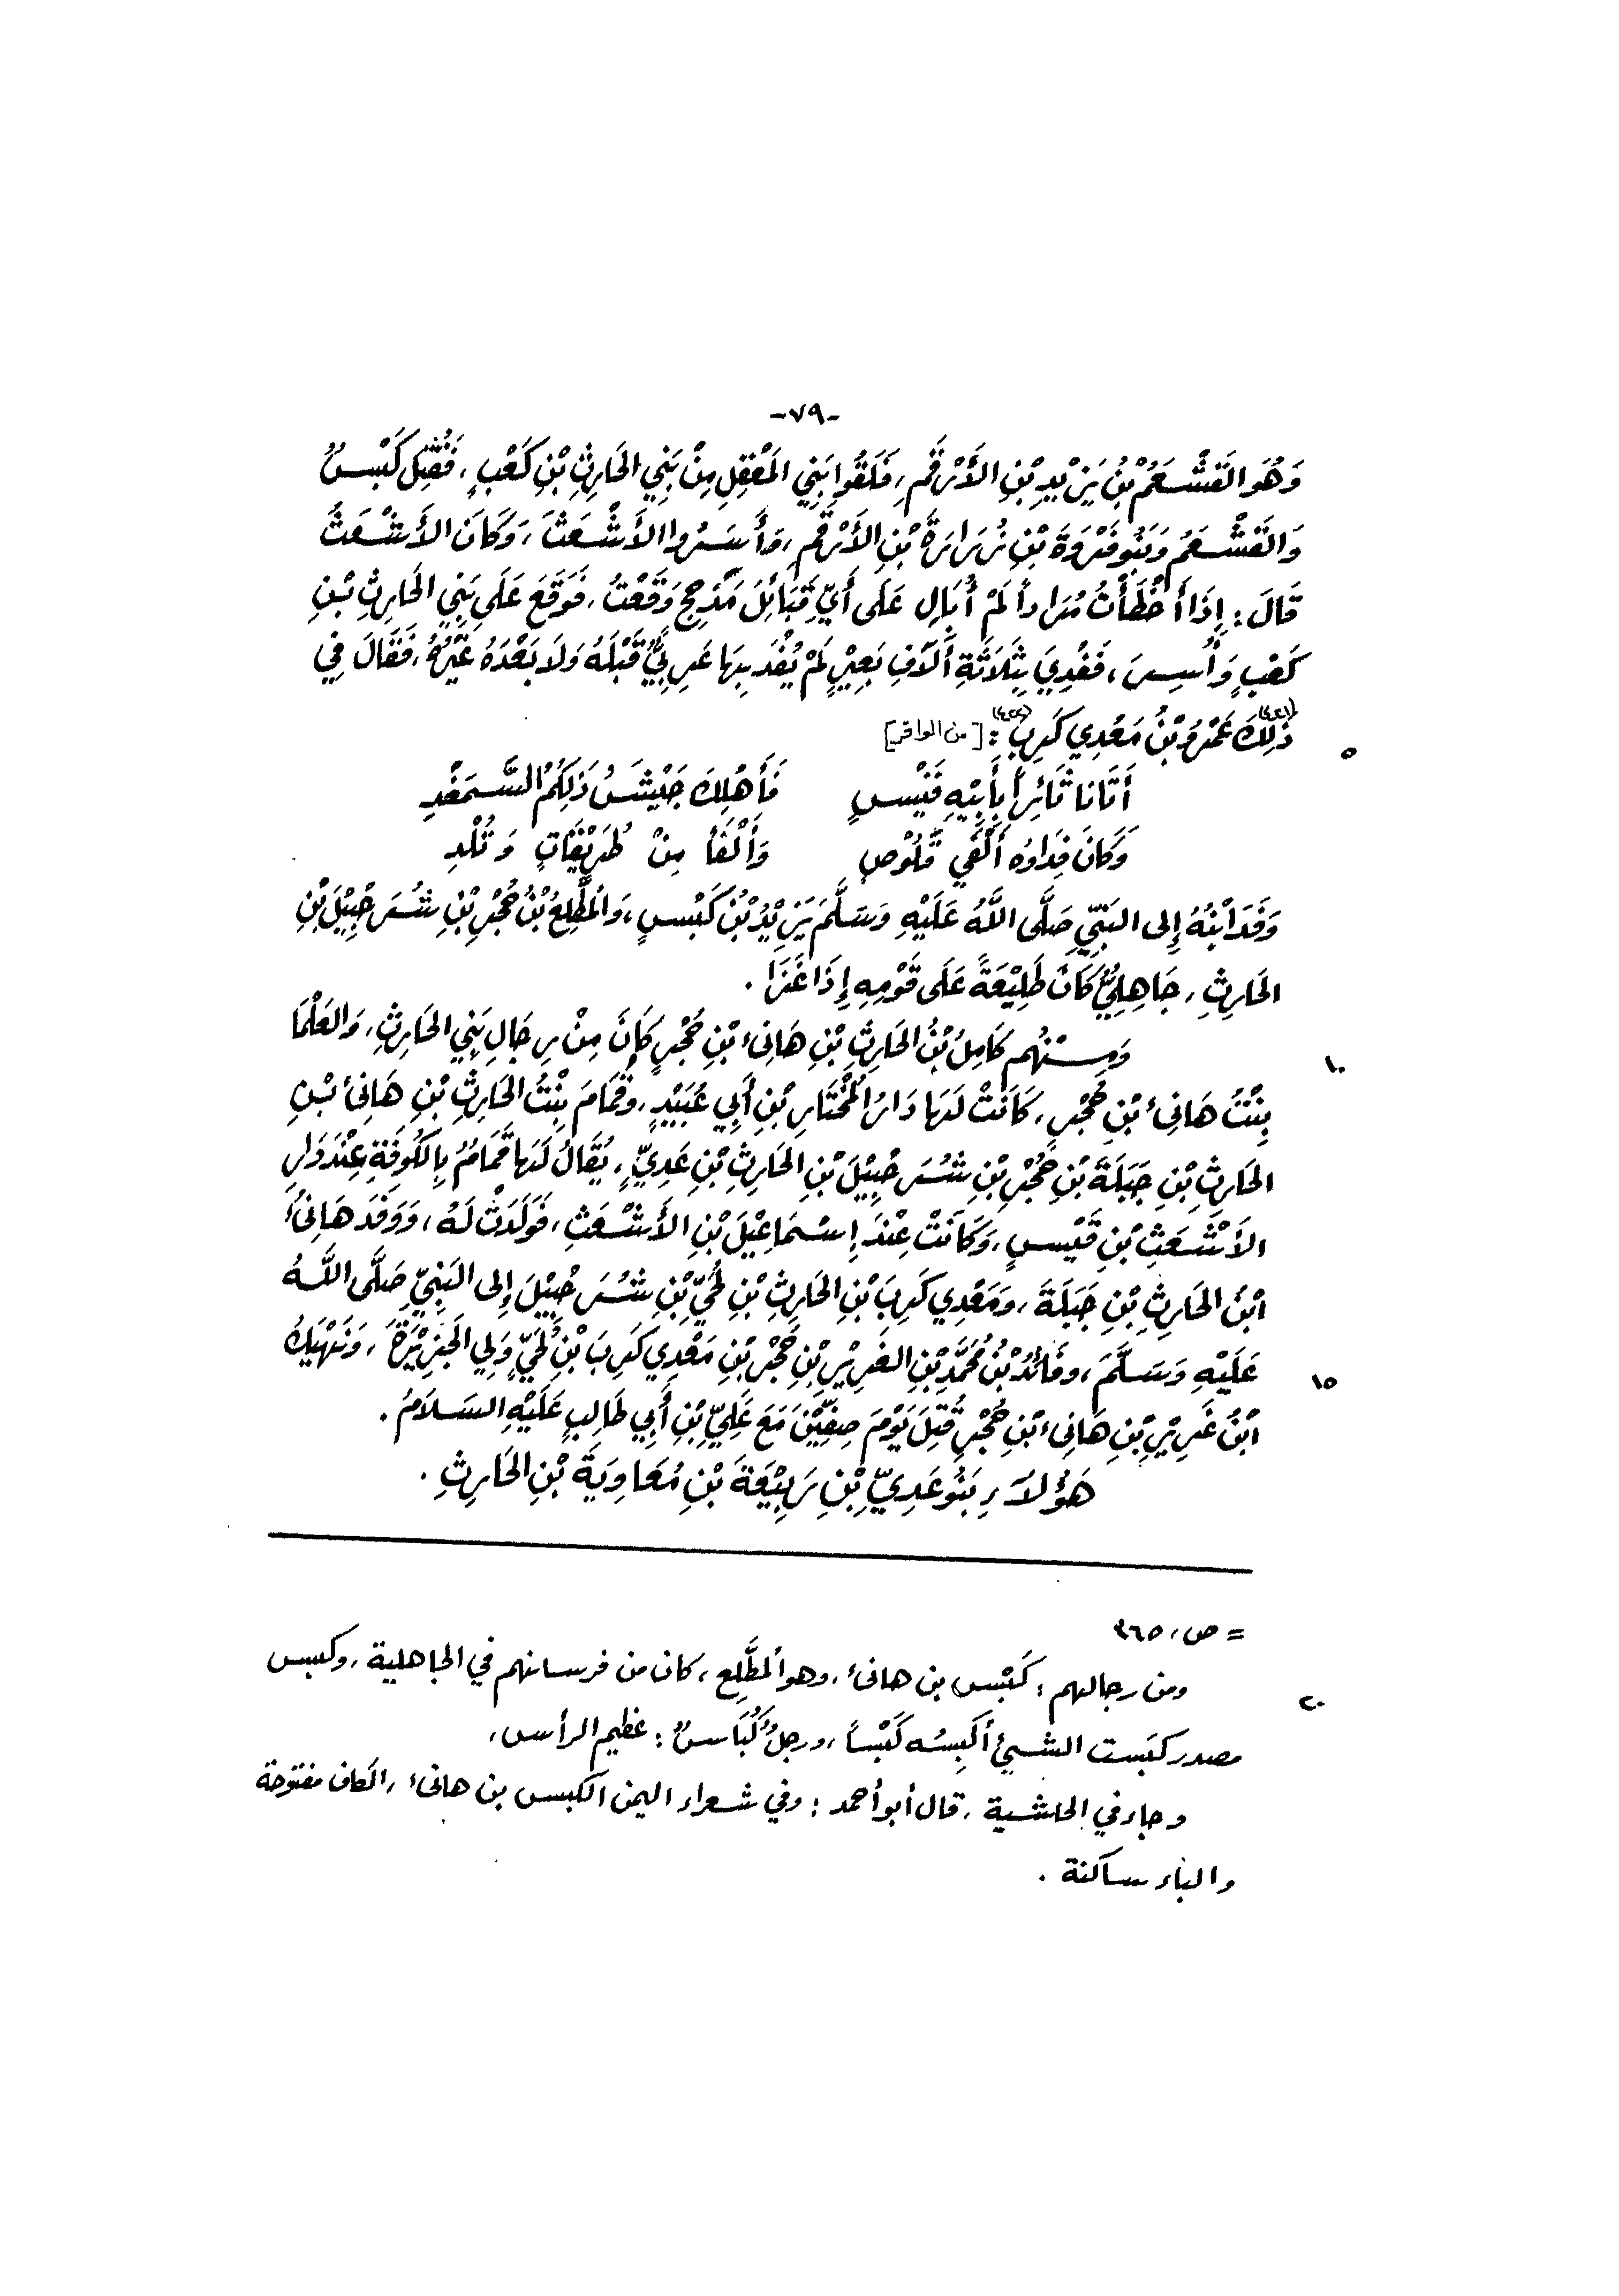 -٧٩-
وَهُوَ القَشْعَمُ بْنُ يَزِيْدِ بْنِ الأَرْقَمِ، فَلَقُوا بَنِي المَعْقِلِ مِنْ بَنِي الحَارِثِ بْنِ كَعْبٍ، فَقُتِلَ كَبْسٌ
وَالقَشْعَمُ وَبَنُو فَرْوَةَ بْنِ زُرَارَةَ بْنِ الأَرْقَمِ، وَأَسَرُوا الأَشْعَثَ، وَكَانَ الأَشْعَثُ
قَالَ: إِذَا أَخْطَأْتُ مُرَاداً لَمْ أُبَالِ عَلَى أَيِّ قَبَائِلَ مَذْحِجٍ وَقَعْتُ، فَوَقَعَ عَلَى بَنِي الحَارِثِ بْنِ
كَعْبٍ وَأُسِرَ، فَفُدِيَ بِثَلَاثَةِ أَلَافِ بَعِيْرٍ لَمْ يُفْدَ بِهَا عَرَبِيٌّ قَبْلَهُ وَلَا بَعْدَهُ غَيْرُهُ، فَقَالَ فِي
ذَلِكَ (٤٢١) عَمْرُو بْنُ مَعْدِي كَرِبَ (٤٢٢): [من الوافر] ٥
أَتَانَا ثَائِراً بِأَبِيْهِ قَيْسٍ فَأَهْلَكَ جَيْشَ ذَلِكُمُ السَّمَغْدِ
وَكَانَ فِدَاوُه أَلْفَي قَلُوْصٍ وَأَلْفَاً مِنْ طُرَيْفَاتٍ وَتُلْدِ
وَفَدَ ابْنُهُ إِلى النَبِيِّ صَلَّى اللَّهُ عَلَيْهِ وَسَلَّمَ يَزِيْدُ بْنُ كَبْسٍ، وَالمُطَّلِعُ بْنُ حُجْرِ بْنِ شُرَحْبِيْلَ بْنِ
الحَارِثِ، جَاهِلِيٌّ كَانَ طَلِيْعَةً عَلَى قَوْمِهِ إِذَا غَزَا.
وَمِنْهُم كَامِلُ بْنُ الحَارِثِ بْنِ هَانِئ بْنِ حُجْرٍ كَانَ مِنْ رِجَالِ بَنِي الحَارِثِ، وَالعَلْمَا ١٠
بِنْتُ هَانِئ بْنِ حُجْرٍ، كَانَتْ لَهَا دَارُ المُخْتَارِ بْنِ أَبِي عُبَيْدٍ، وقَمَامَ بِنْتُ الحَارِثِ بْنِ هَانِئ بْنِ
الحَارِثِ بْنِ جَبَلَةَ بْنِ حُجْرِ بْنِ شُرَحْبِيْلَ بْنِ الحَارِثِ بْنِ عَدِيٍّ، يُقَالُ لَهَا قَمَامُ بِالكُوفَةِ عِنْدَ دَارِ
الأَشْعَثِ بْنِ قَيْسٍ، وَكَانَتْ عِنْدَ إِسْمَاعِيْلَ بْنِ الأَشْعَثِ، فَوَلَدَتْ لَهُ، وَوَفَدَ هَانِئُ
ابْنُ الحَارِثِ بْنِ جَبَلَةَ، وَمَعْدِي كَرِبَ بْنِ الحَارِثِ بْنِ لُحَيِّ بْنِ شُرَحْبِيْلَ إِلى النَبِيِّ صَلَّى اللَّهُ
عَلَيْهِ وَسَلَّمَ، وفَائِدُ بْنُ مُحَمَّدِ بْنِ الغَرِيْرِ بْنِ حُجْرِ بْنِ مَعْدِي كَرِبَ بْنِ لُحَيٍّ وَلِي الجَزِيْرَةَ، وَنَهْيَكُ ١٥
ابْنُ غَرِيْرِ بْنِ هَانِئ بْنِ حُجْرٍ قُتِلَ يَوْمَ صِفِّيْنَ مَعَ عَلِيِّ بْنِ أَبِي طَالِبٍ عَلَيْهِ السَلَامُ.
هَؤُلَاءِ بَنُو عَدِيِّ بْنِ رَبِيْعَةَ بْنِ مُعَاوِيَةَ بْنِ الحَارِثِ.
= ص، ٣٦٥
ومن رجالهم: كَبْس بن هانئ، وهو المطَّلِع، كان من فرسانهم في الجاهلية، وكبس ٢٠
مصدر كبَست الشيئ أكبِسُه كَبْساً، ورجلٌ كُبَاسٌ: عظيم الرأس،
وجاء في الحاشية، قال أبو أحمد: وفي شعراء اليمن الكبس بن هانئ، الكاف مفتوحة
والباء ساكنة.